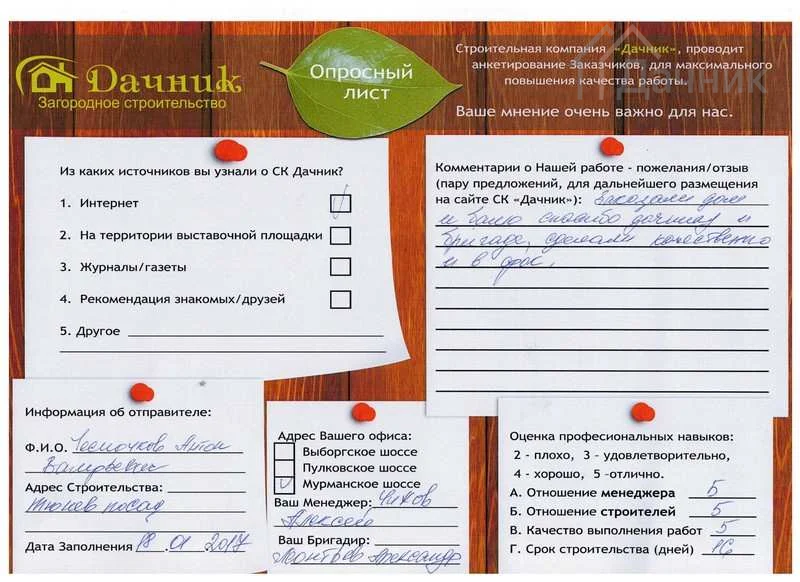 Дачник
Загородное строительство
Опросный
лист
Строительная компания «Дачник», проводит
анкетирование Заказчиков, для максимального
повышения качества работы.
Ваше мнение очень важно для нас.
ДАЧНИК
Из каких источников вы узнали о СК Дачник?
1. Интернет
2. На территории выставочной площадки
3. Журналы/газеты
4. Рекомендация знакомых/друзей
5. Другое
Комментарии о Нашей работе - пожелания/отзыв
(пару предложений, для дальнейшего размещения
на сайте СК «Дачник»): Заказали дом
и баню спасибо дачнику и
бригаде, сделали качественно
и в срок.
Информация об отправителе:
Ф.И.О. Антон
Адрес Строительства:
посад
Дата Заполнения 18.01.2017
Адрес Вашего офиса:
Выборгское шоссе
Пулковское шоссе
Мурманское шоссе
Ваш Менеджер: Чижов
Алексей
Ваш Бригадир:
Александр
Оценка професиональных навыков:
2 - плохо, 3 - удовлетворительно,
4 - хорошо, 5 -отлично.
А. Отношение менеджера 5
Б. Отношение строителей 5
В. Качество выполнения работ 5
Г. Срок строительства (дней) 16